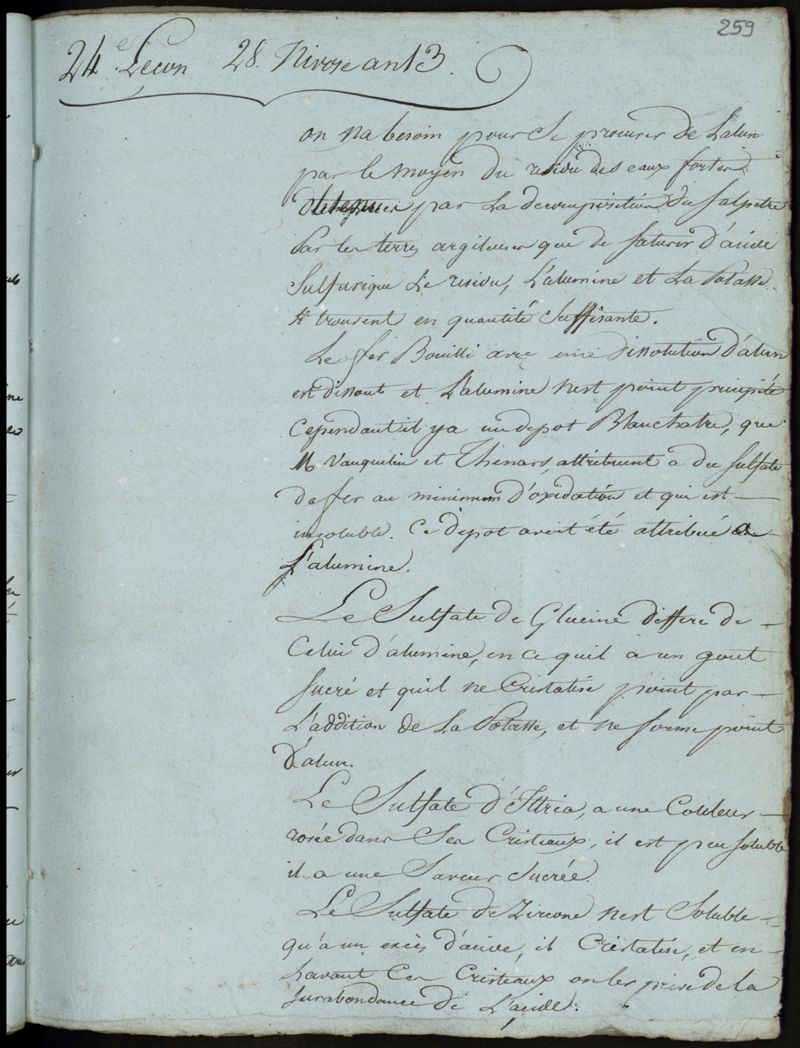 259
24e Leçon 28 Nivose an 13.
on na besoin pour se procurer de Lalun
par le moyen du residu des eaux fortes
obtenues par La decomposition du Salpetre
Par les terres argileuses que de saturer d'acide
Sulfurique Le residu, L'alumine et La Potasse
s'y trouvent en quantité Suffisante.
Le fer Bouilli avec une dissolution d'alun
est dissout et L'alumine n'est point precipitée
Cependant il y a un depot Blanchatre, que
M Vauquelin et Thenard, attribuent a du sulfate
de fer au minimum d'oxidation et qui est
insoluble. Ce depot avoit été attribué a
L'alumine.
Le Sulfate de Glucine differe de
Celui d'alumine, en ce quil a un gout
sucré et quil ne Cristalise point par
L'addition de La Potasse, et ne forme point
D'alun.
Le Sulfate d'Ittria, a une Couleur
rosée dans Ses Cristeaux, il est peu soluble
il a une Saveur Sucrée.
Le Sulfate de Zircone n'est Soluble
qu'a un excès d'acide, il Cristalise, et en
Lavant Ces Cristeaux on les prive de la
surabondance de L'acide.